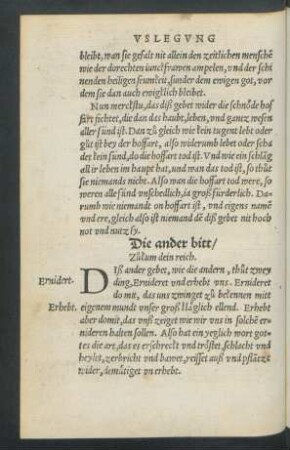 VSLEGVNG
bleibt, wan sie gefalt nit allein den zeitlichen menschē
wie der dorechten iunckfrawen ampelen, vnd der schi
nenden heiligen frumkeit, sunder dem ewigen got, vor
dem sie dan auch ewiglich bleibet.
Nun merckstu, das diß gebet wider die schnöde hof
fart fichtet, die dan das haubt, leben, vnd gantz wesen
aller sünd ist. Dan zů gleich wie kein tugent lebt oder
gůt ist bey der hoffart, also widerumb lebet oder scha
det kein sünd, do die hoffart tod ist. Vnd wie ein schlāg
all ir leben im haupt hat, vnd wan das tod ist, so thůt
sie niemands nicht. Also wan die hoffart tod were, so
weren alle sünd vnschedlich, ia groß fürderlich. Da-
rumb wie niemandt on hoffart ist, vnd eigens namē
vnd ere, gleich also ist niemand dē diß gebet nit hoch
not vnd nutz sy.
Die ander bitt/
Zůkum dein reich.
Diß ander gebet, wie die andern, thůt zwey
Ernidert.
ding, Ernideret vnd erhebt vns. Ernideret
do mit, das vns zwinget zů bekennen mitt
Erhebt.
eigenem mundt vnser groß kläglich ellend. Erhebt
aber domit, das vnß zeiget wie wir vns in solchē er-
nideren halten sollen. Also hat ein yeglich wort got-
tes die art, das es erschreckt vnd tröstet, schlacht vnd
heylet, zerbricht vnd bawet, reisset auß vnd pflātzet
wider, demütiget vn erhebt.